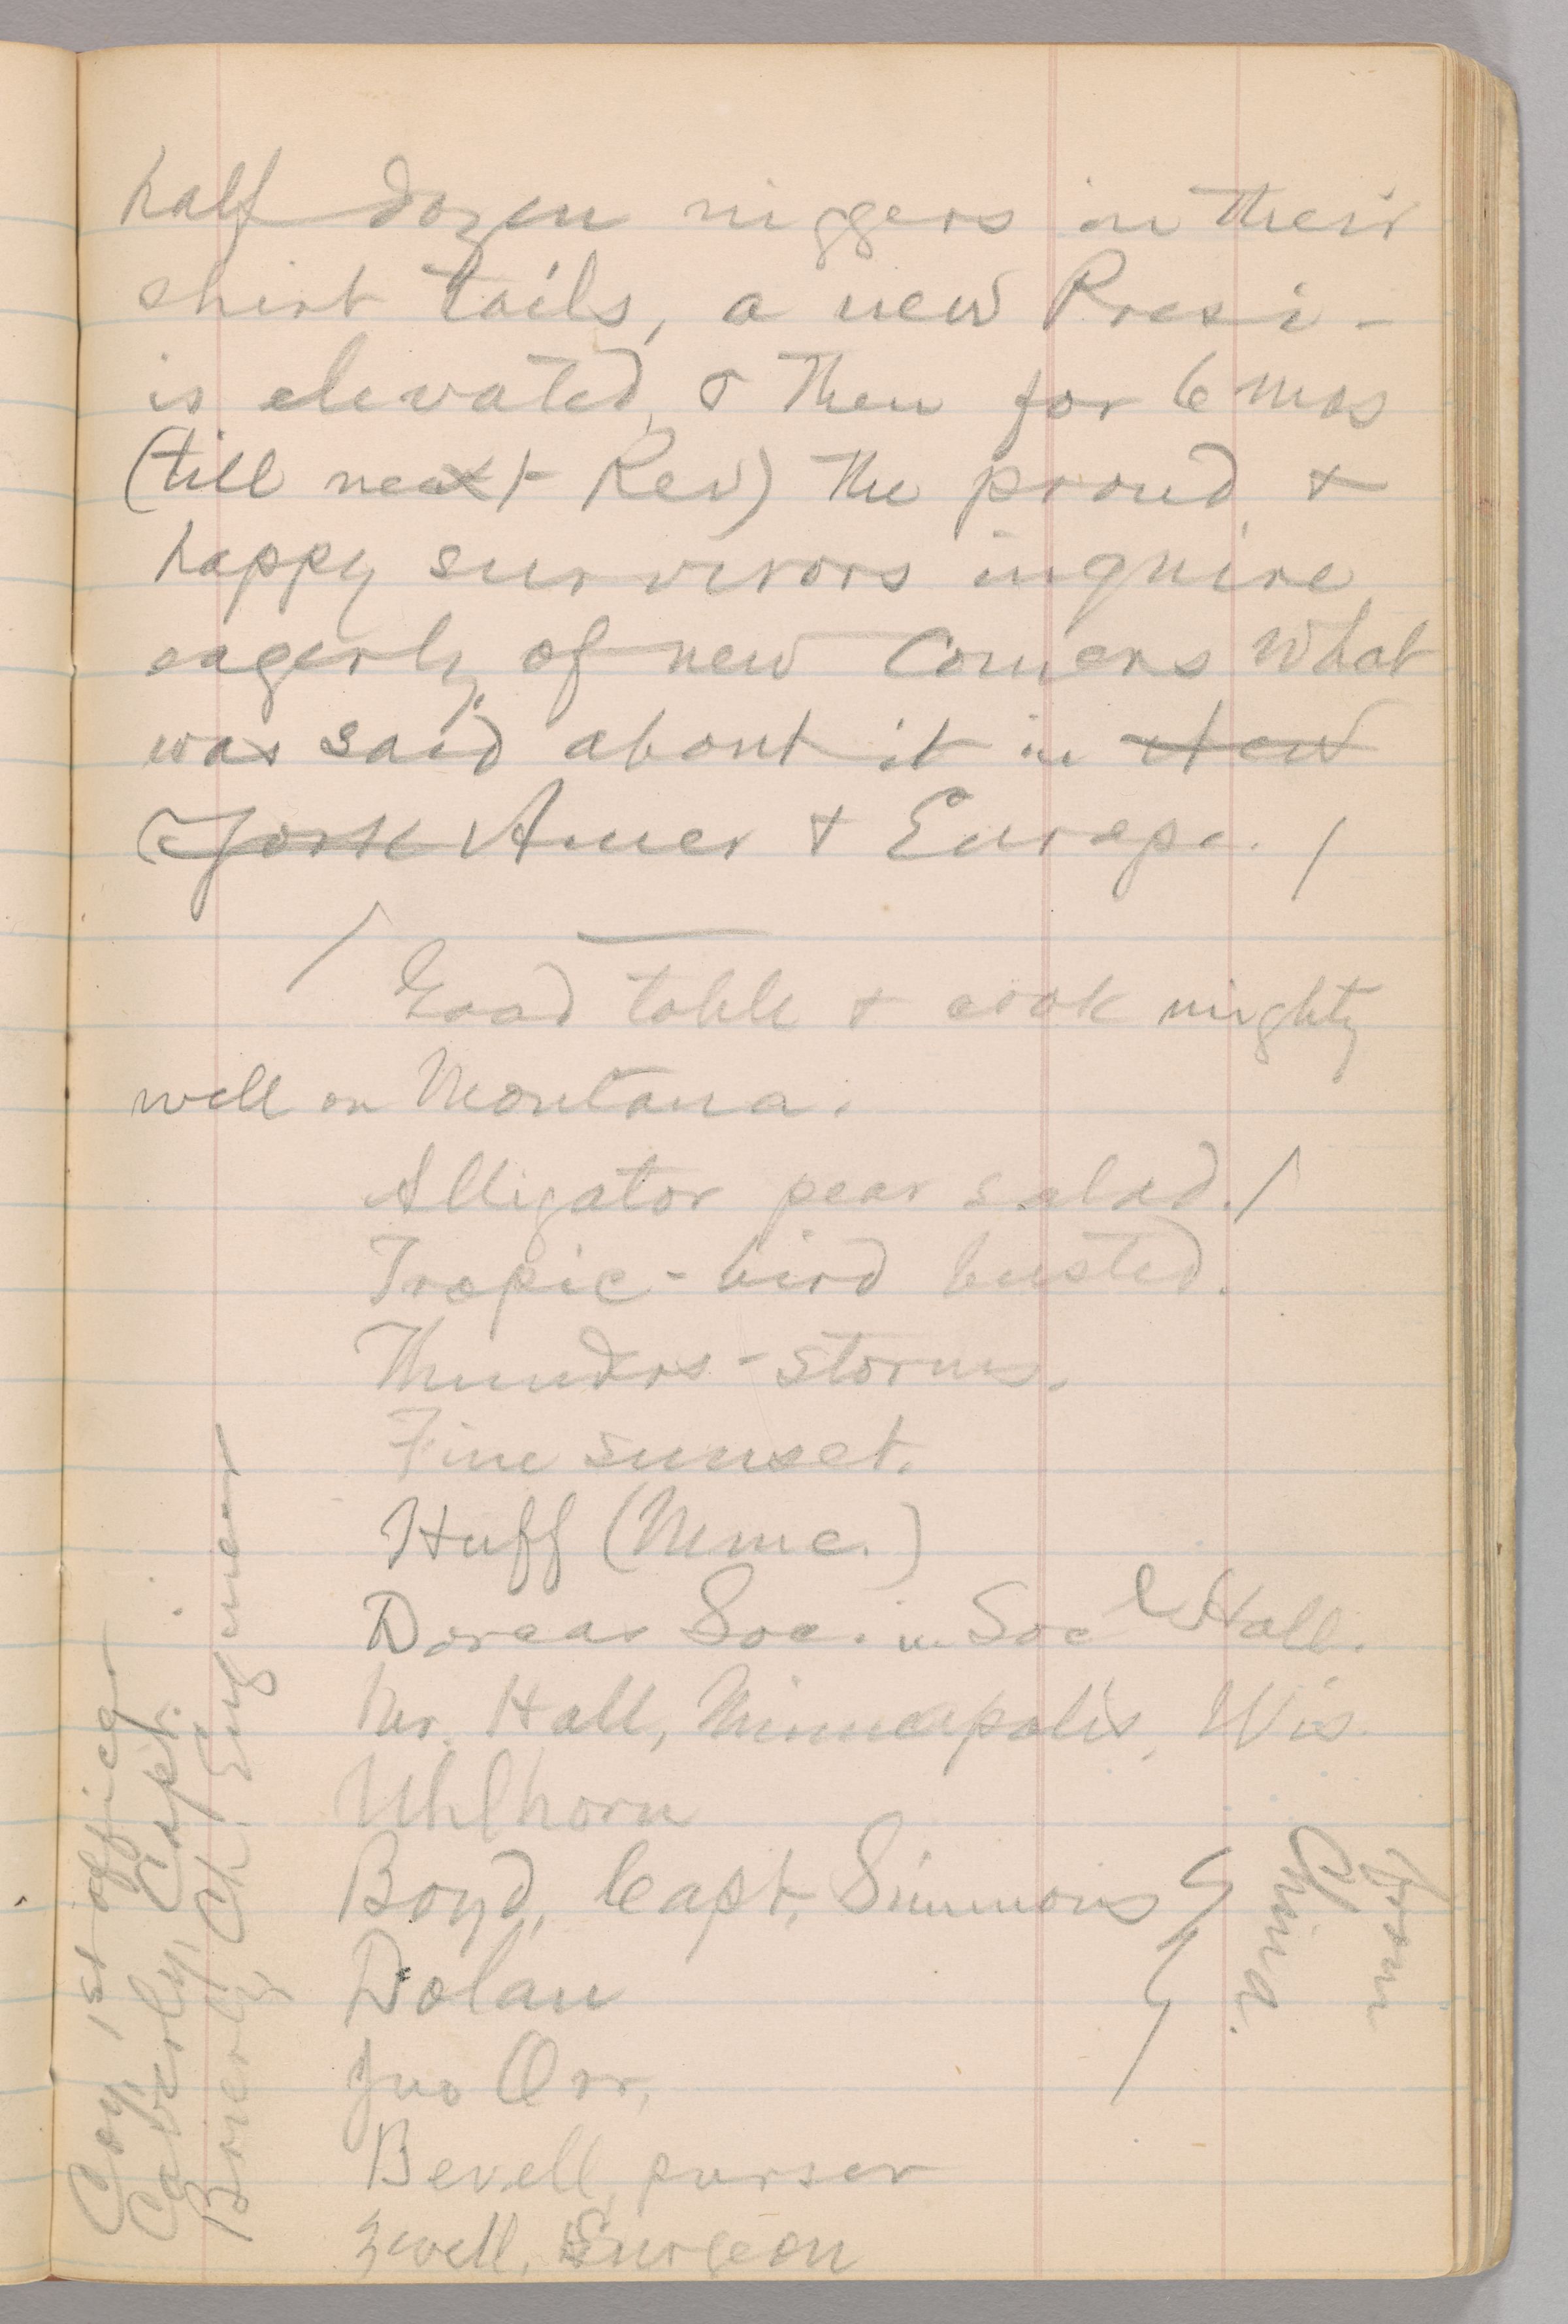 half dozen niggers in their
shirt tails, a new Presi-
is elevated, & then for 6 mos
(till next Rev) the proud &
happy survivors inquire
eagerly of new comers what
was said about it in New
York Amer & Europe. /
/ Good table & cook mighty
well on Montana.
Alligator pear salad. /
Tropic-bird busted.
Thunders-storms.
Fine sunset.
Huff (Mme.)
Dorcas Soc. in Soc Hall.
Mr. Hall, Minneapolis, Wis.
Uhlhorn
Boyd, Capt. Simmons
Dolan
Jno Orr,
Bevell, purser
Zwell, Surgeon
from
China.
Coy, 1st officer
Caverly, Capt.
Ch. Engineer